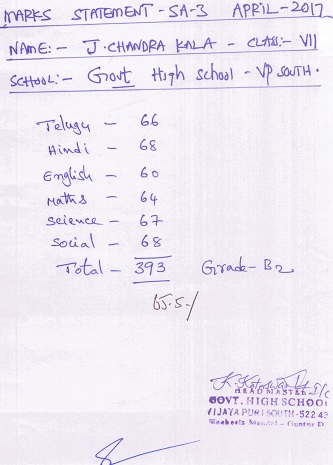 MARKS STATEMENT - SA-3 APRIL-2017
NAME:- J. CHANDRA KALA - CLASS:- VII
SCHOOL:- Govt High school - VP SOUTH.
Telugu - 66
Hindi - 68
English - 60
Maths - 64
science - 67
social - 68
Total - 393 Grade-B2
65.5%
HEADMASTER
GOVT. HIGH SCHOOL
VIJAYA PURI SOUTH-522 43
Mandal - Guntur D